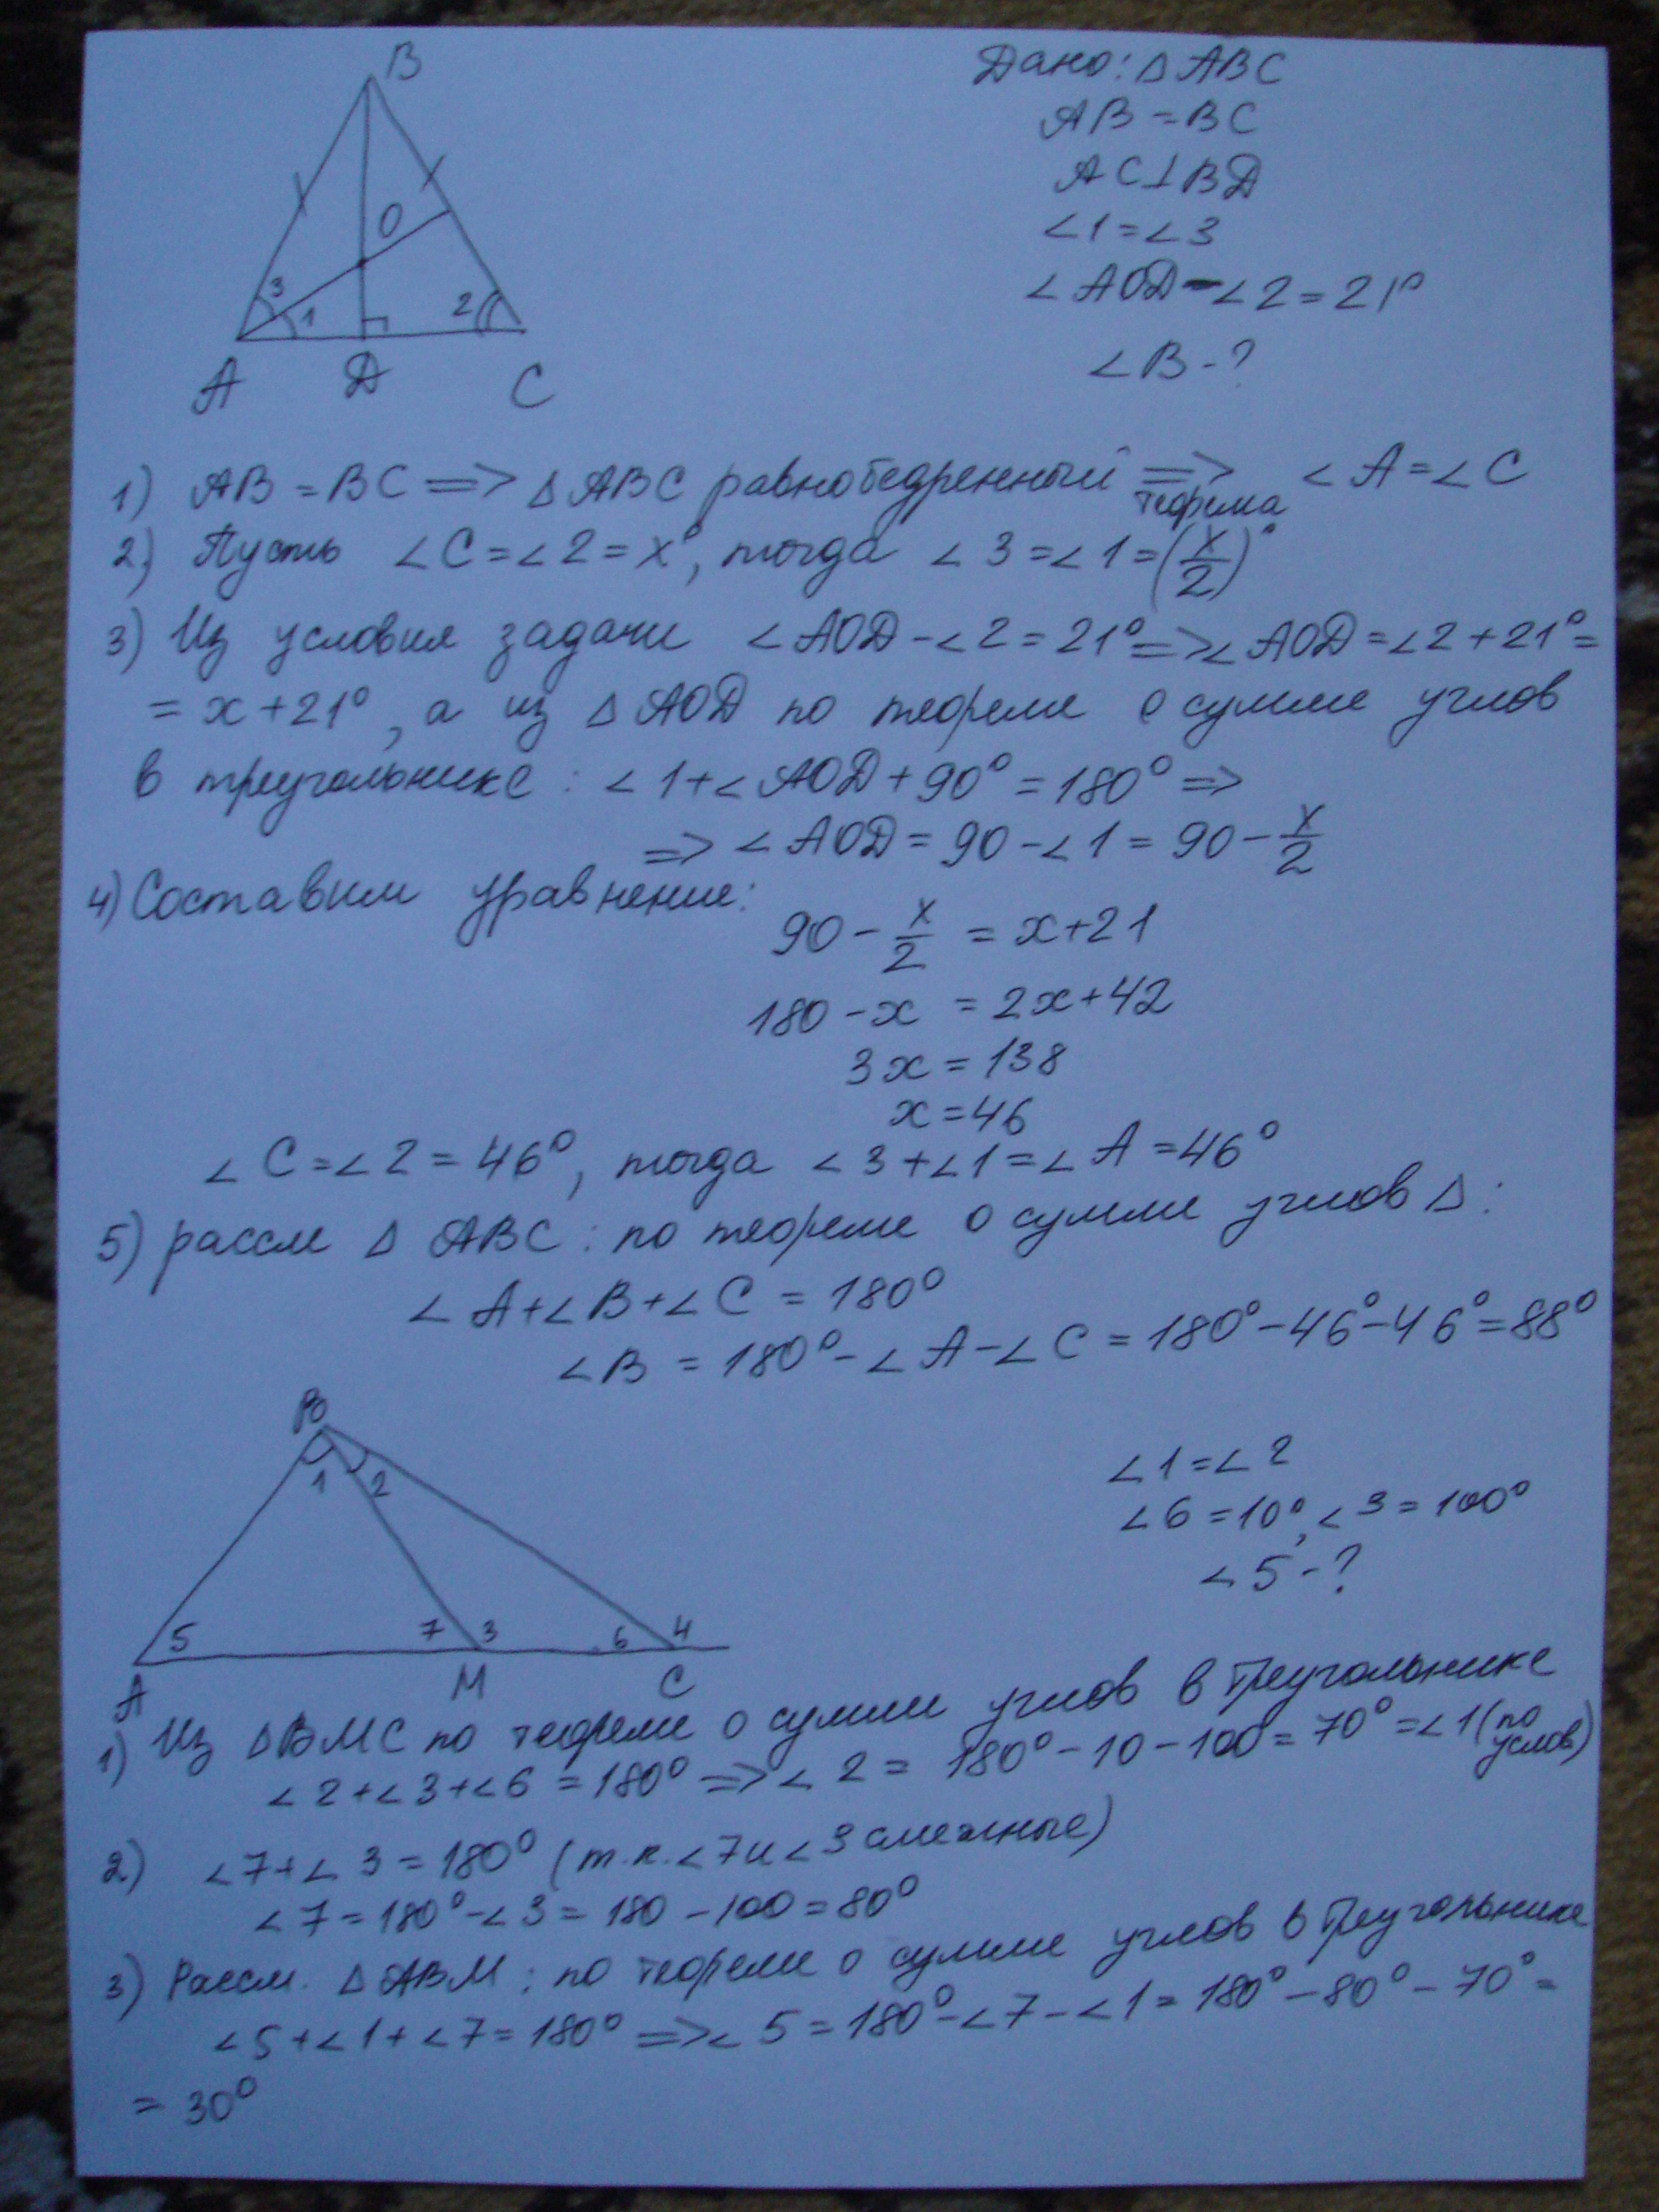 B
O
3
1
2
A
D
C
Дано: △ ABC
AB = BC
AC⊥BD
∠1=∠3
∠AOD-∠2=21°
∠B-?
1) AB = BC => △ ABC равнобедренный => ∠A=∠C
теорема
2) Пусть ∠C=∠2=x°, тогда ∠3=∠1=(x/2)°
3) Из условия задачи ∠AOD-∠2=21°=>∠AOD=∠2+21°=
= x+21°, а из △ AOD по теореме о сумме углов
в треугольнике: ∠1+∠AOD+90°=180° =>
=> ∠AOD=90-∠1=90-x/2
4) Составим уравнение:
90 - x/2 = x+21
180 - x = 2x+42
3x = 138
x = 46
∠C=∠2=46°, тогда ∠3+∠1=∠A=46°
5) рассм △ ABC: по теореме о сумме углов △:
∠A+∠B+∠C = 180°
∠B = 180°-∠A-∠C = 180°-46°-46°=88°
B
1
2
5
7
3
6
4
A
M
C
∠1=∠2
∠6=10°, ∠3=100°
∠5-?
1) Из △BMC по теореме о сумме углов в треугольнике
∠2+∠3+∠6=180°=>∠2= 180°-10-100=70°=∠1(по услов)
2) ∠7+∠3=180° (т.к.∠7и∠3 смежные)
∠7=180°-∠3=180-100=80°
3) Рассм. △ABM: по теореме о сумме углов в треугольнике
∠5+∠1+∠7=180° =>∠5=180°-∠7-∠1=180°-80°-70°=
= 30°